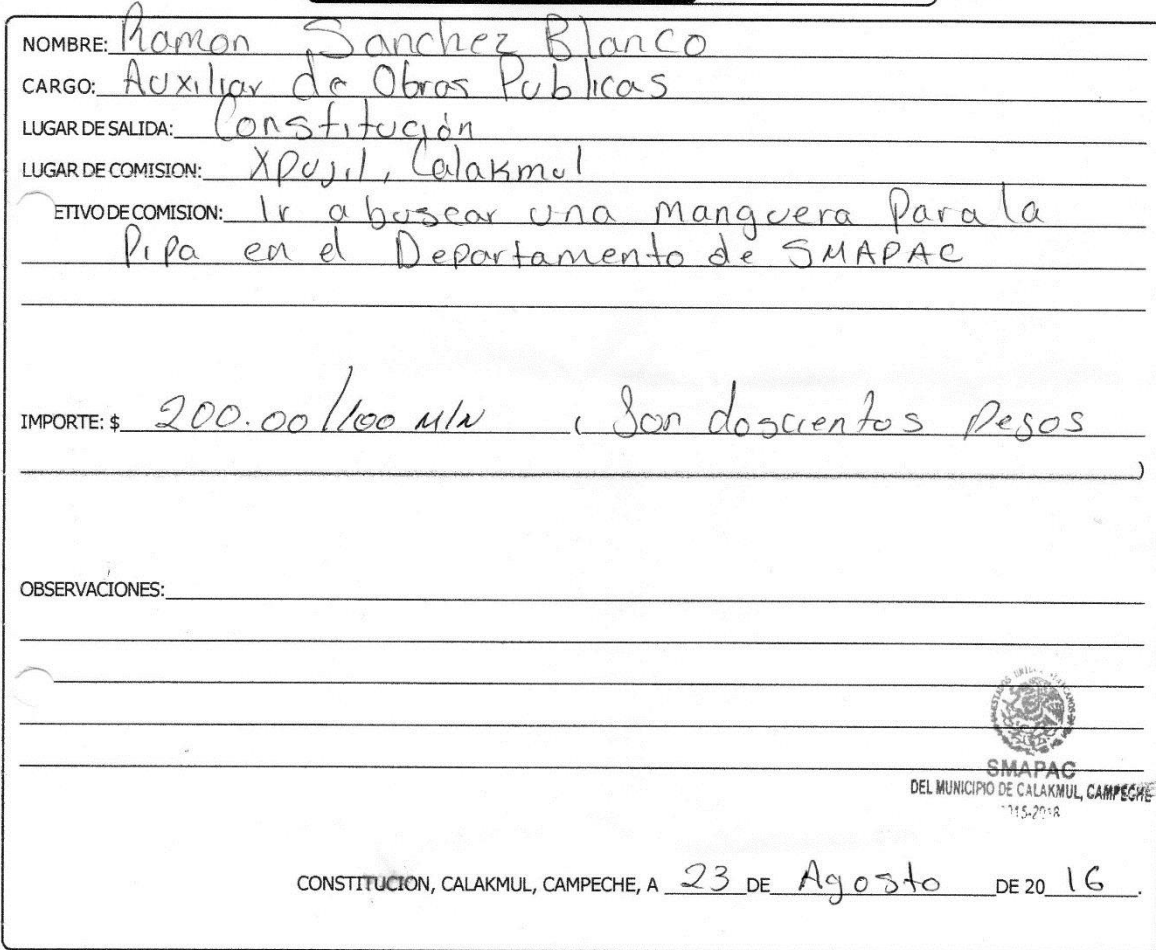 NOMBRE: Ramon Sanchez Blanco
CARGO: Auxiliar de Obras Publicas
LUGAR DE SALIDA: Constitución
LUGAR DE COMISION: Xpujil, Calakmul
ETIVO DE COMISION: Ir a buscar una manguera Para la
Pipa en el Departamento de SMAPAC
IMPORTE: $ 200.00/100 M/N ( Son doscientos Pesos
)
OBSERVACIONES:
SMAPAC
DEL MUNICIPIO DE CALAKMUL, CAMPECHE
2015-2018
CONSTITUCION, CALAKMUL, CAMPECHE, A 23 DE Agosto DE 20 16.